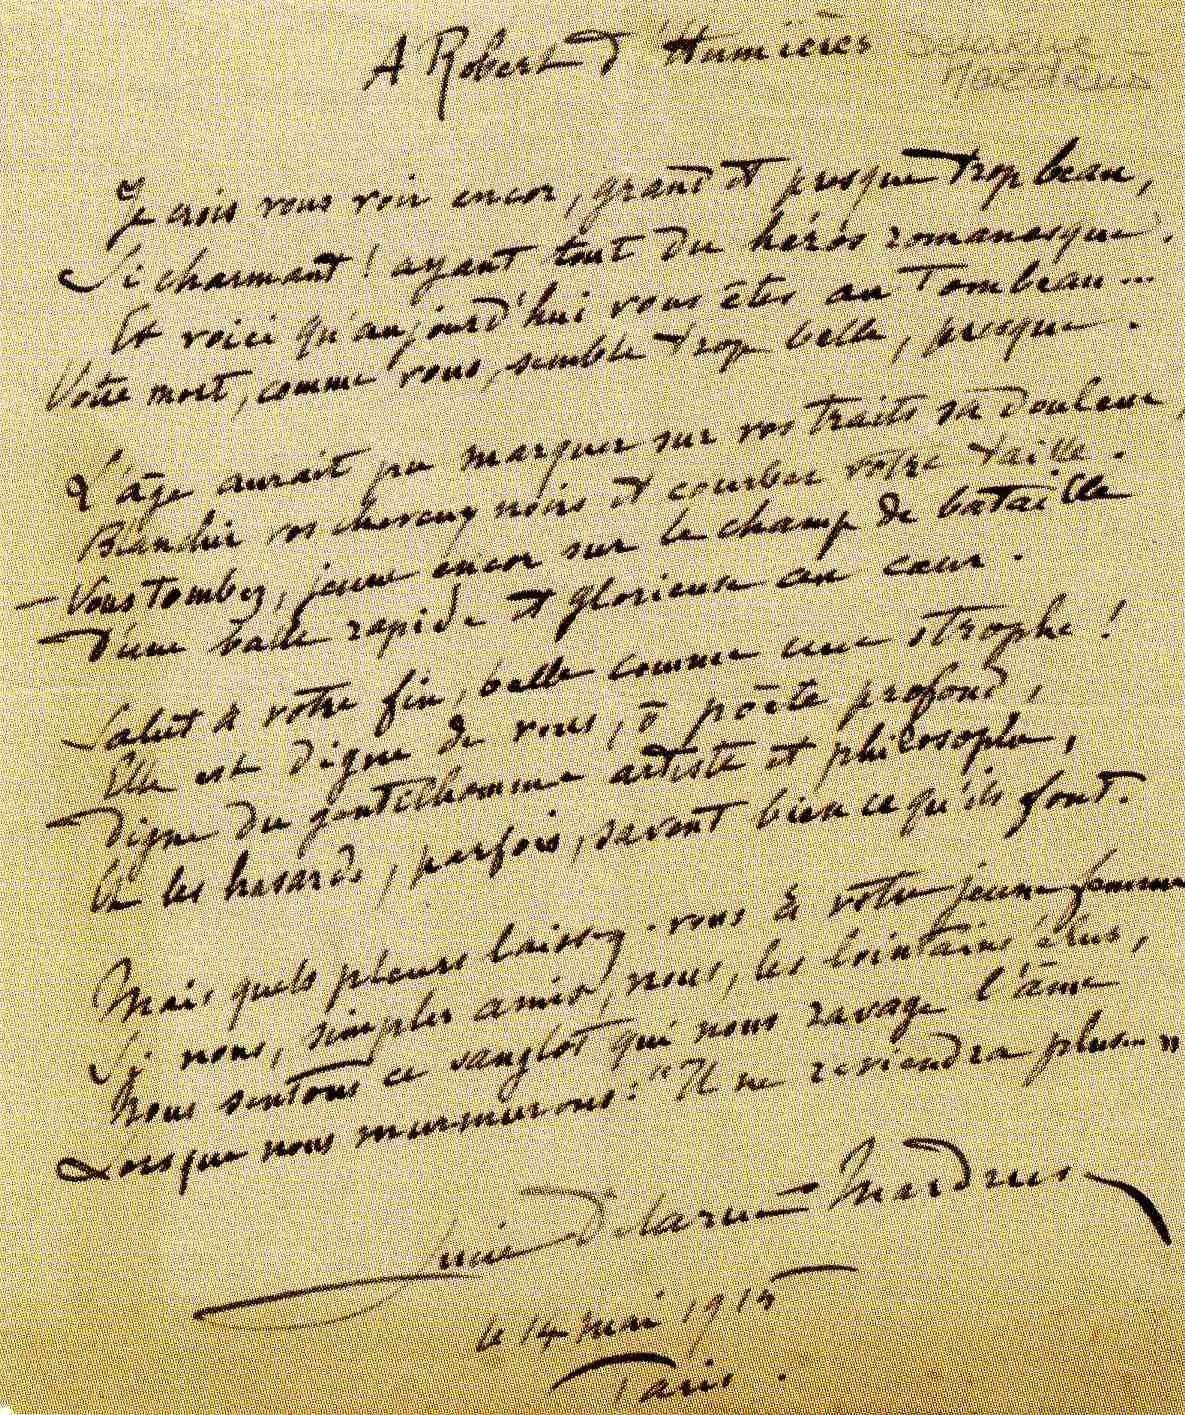 A Robert d'Humières
Delarue
Mardrus
Je crois vous voir encor, grand et presque trop beau,
Si charmant ! ayant tout du héros romanesque.
Et voici qu'aujourd'hui vous êtes au tombeau...
Votre mort, comme vous, semble trop belle, presque.
L'âge aurait pu marquer sur vos traits sa douleur,
Blanchir vos cheveux noirs et courber votre taille.
— Vous tombez, jeune encor sur le champ de bataille
D'une balle rapide et glorieuse au cœur.
Salut à votre fin, belle comme une strophe !
Elle est digne de vous, ô poëte profond,
Digne du gentilhomme artiste et philosophe,
Et les hasards, parfois, savent bien ce qu'ils font.
Mais quels pleurs laissez-vous à votre jeune femme
Si nous, simples amis, nous, les lointains élus,
Nous sentons ce sanglot qui nous ravage l'âme
Lorsque nous murmurons : "Il ne reviendra plus... "
Lucie Delarue Mardrus
le 14 mai 1915
Paris.